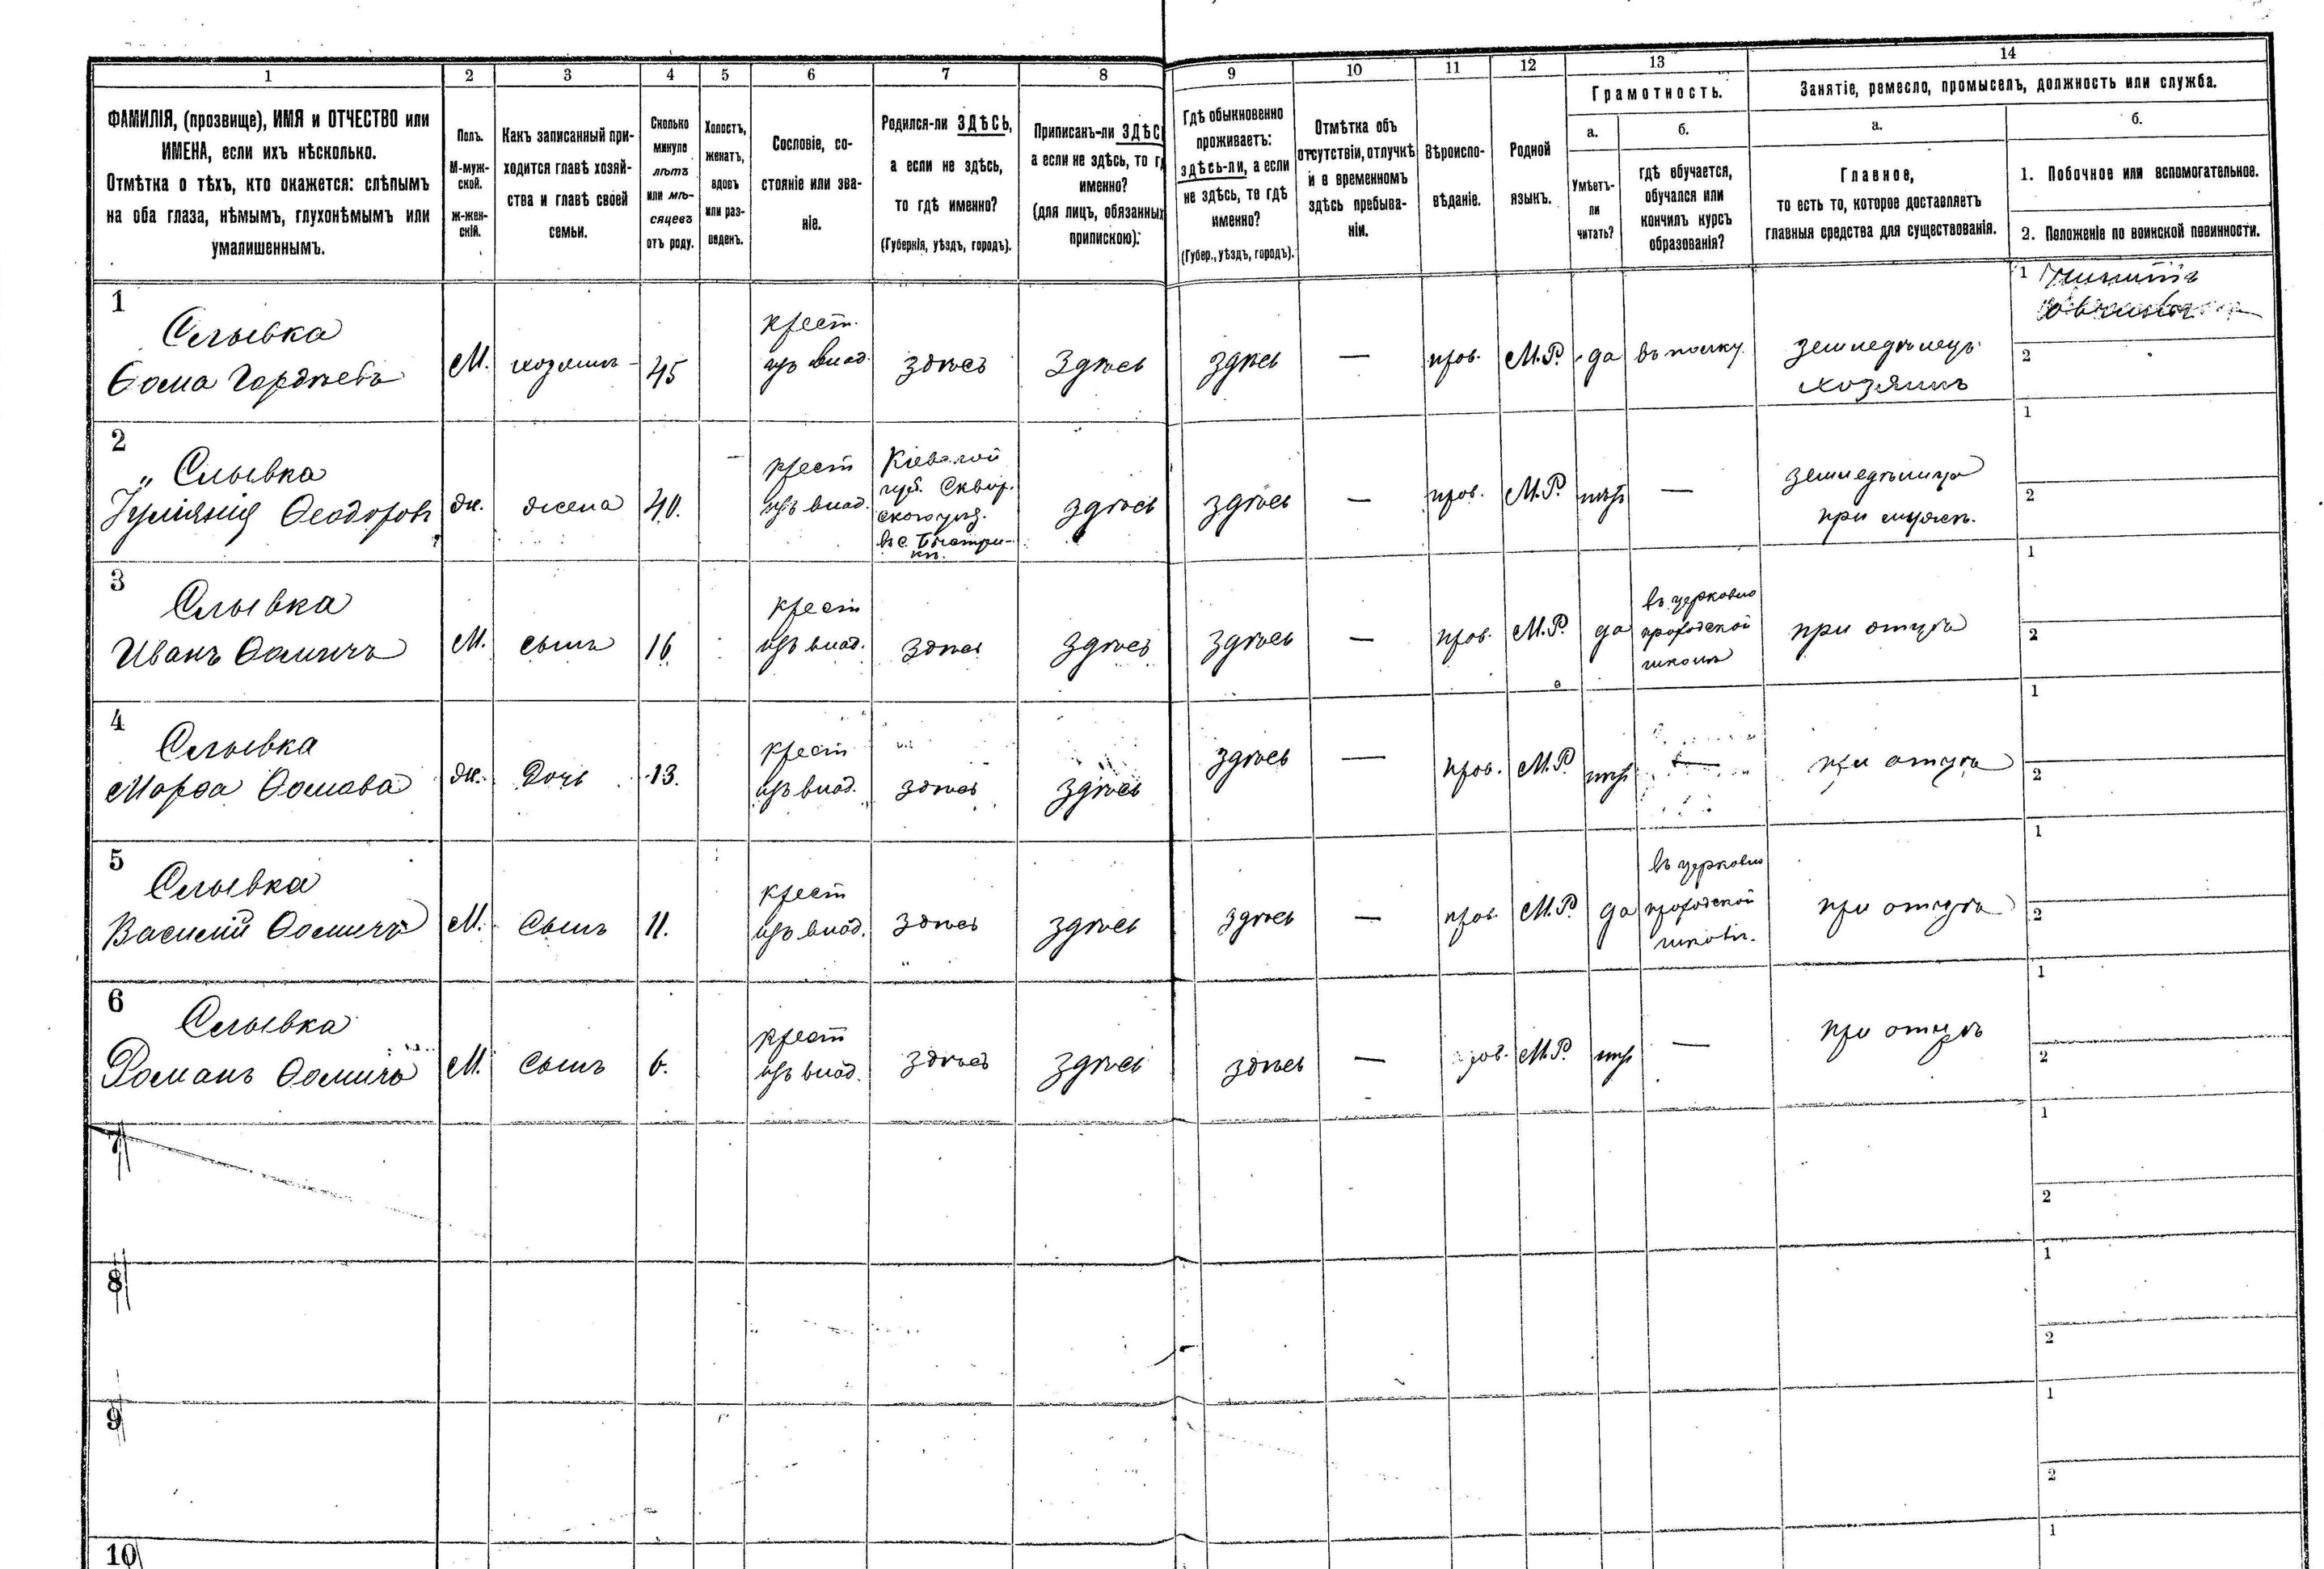 1 2 3 4 5 6 7 8 9 10 11 12 13 14
ФАМИЛІЯ, (прозвище), ИМЯ и ОТЧЕСТВО или
ИМЕНА, если ихъ нѣсколько.
Отмѣтка о тѣхъ, кто окажется: слѣпымъ
на оба глаза, нѣмымъ, глухонѣмымъ или
умалишеннымъ.
Полъ.
М-муж-
ской.
ж-жен-
скій.
Какъ записанный при-
ходится главѣ хозяй-
ства и главѣ своей
семьи.
Сколько
минуло
лѣтъ
или мѣ-
сяцевъ
отъ роду.
Холостъ,
женатъ,
вдовъ
или раз-
веденъ.
Сословіе, со-
стояніе или зва-
ніе.
Родился-ли ЗДѢСЬ,
а если не здѣсь,
то гдѣ именно?
(Губернія, уѣздъ, городъ).
Приписанъ-ли ЗДѢС
а если не здѣсь, то г
именно?
(для лицъ, обязанных
припискою).
Гдѣ обыкновенно
проживаетъ:
здѣсь-ли, а если
не здѣсь, то гдѣ
именно?
(Губер., уѣздъ, городъ).
Отмѣтка объ
отсутствіи, отлучкѣ
и о временномъ
здѣсь пребыва-
ніи.
Вѣроиспо-
вѣданіе.
Родной
языкъ.
Грамотность.
а.
Умѣетъ-
ли
читать?
б.
гдѣ обучается,
обучался или
кончилъ курсъ
образованія?
Занятіе, ремесло, промыселъ, должность или служба.
а.
Главное,
то есть то, которое доставляетъ
главныя средства для существованія.
б.
1. Побочное или вспомогательное.
2. Положеніе по воинской повинности.
1
Слывка
Ѳома Гордѣевъ
М.
хозяинъ
45
крест.
изъ влад.
здѣсь
здѣсь
здѣсь
—
прав.
М.Р.
да
въ полку
земледѣлецъ
хозяинъ
1
2
2
„ Слывка
Ѳеодоров
ж.
жена
40.
крест
изъ влад.
Кіевской
губ. Сквир.
ского уѣз.
въ с. Быстри-
кѣ.
здѣсь
здѣсь
—
прав.
М.Р.
нѣтъ
—
земледѣлица
при мужѣ.
1
2
3
Слывка
Иванъ Ѳомичъ
М.
сынъ
16
крест
изъ влад.
здѣсь
здѣсь
здѣсь
—
прав.
М.Р.
да
въ церковно
приходской
школѣ
при отцѣ
1
2
4
Слывка
Марѳа Ѳомова
ж.
дочь
13.
крест
изъ влад.
здѣсь
здѣсь
здѣсь
—
прав.
М.Р.
нѣтъ
—
при отцѣ
1
2
5
Слывка
Василій Ѳомичъ
М.
сынъ
11.
крест
изъ влад.
здѣсь
здѣсь
здѣсь
—
прав.
М.Р.
да
въ церковно
приходской
школѣ.
при отцѣ
1
2
6
Слывка
Романъ Ѳомичъ
М.
сынъ
6.
крест
изъ влад.
здѣсь
здѣсь
здѣсь
—
прав.
М.Р.
нѣтъ
—
при отцѣ
1
2
7
1
2
8
1
2
9
1
2
10
1